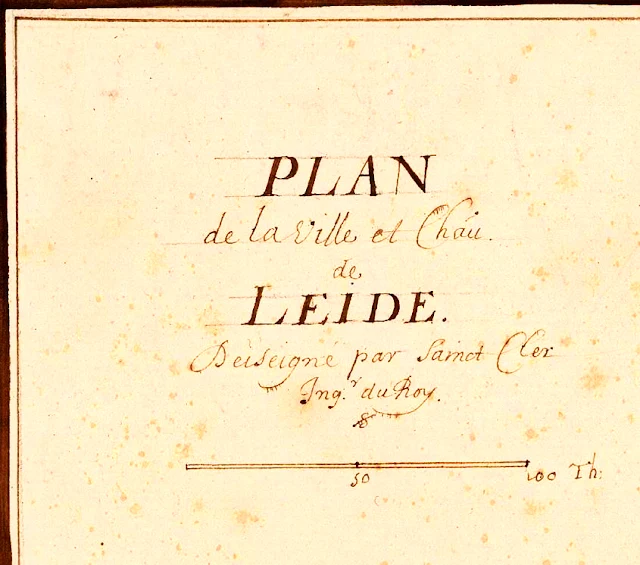 PLAN
de la Ville et Châu.
de
LEIDE.
Deisseigné par Sainct Cler
Ing.r du Roy.
50 100 Th: